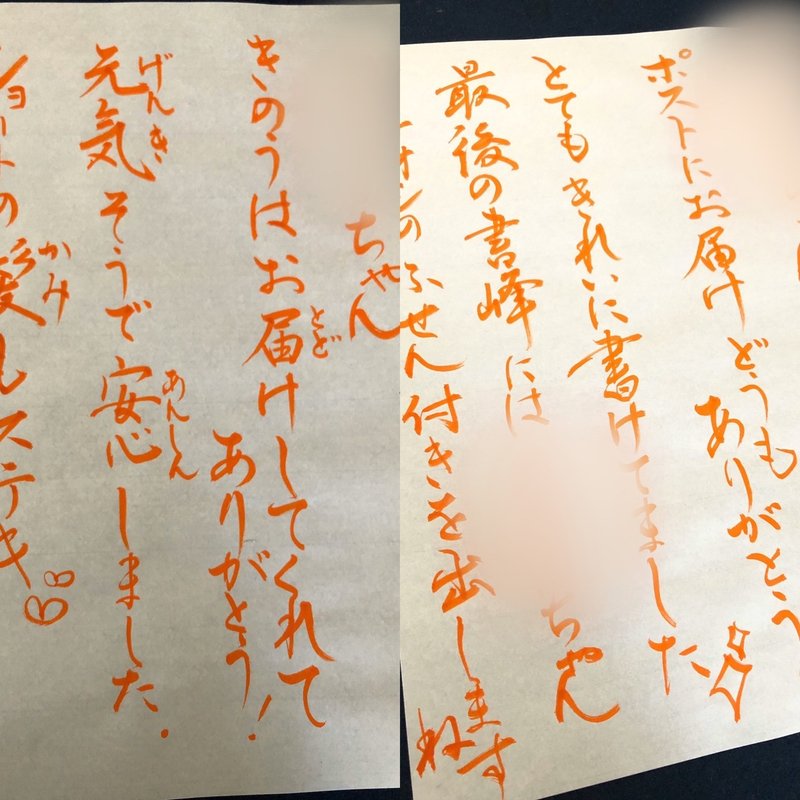 ちゃん
きのうはお届けしてくれて
とど
ありがとう!
元気そうで安心しました.
げんき
あんしん
ショートの髪もステキ
かみ
ポストにお届けどうも
ありがとう
とてもきれいに書けてました
最後の書峰には
ちゃん
のふせん付きを出します
ね